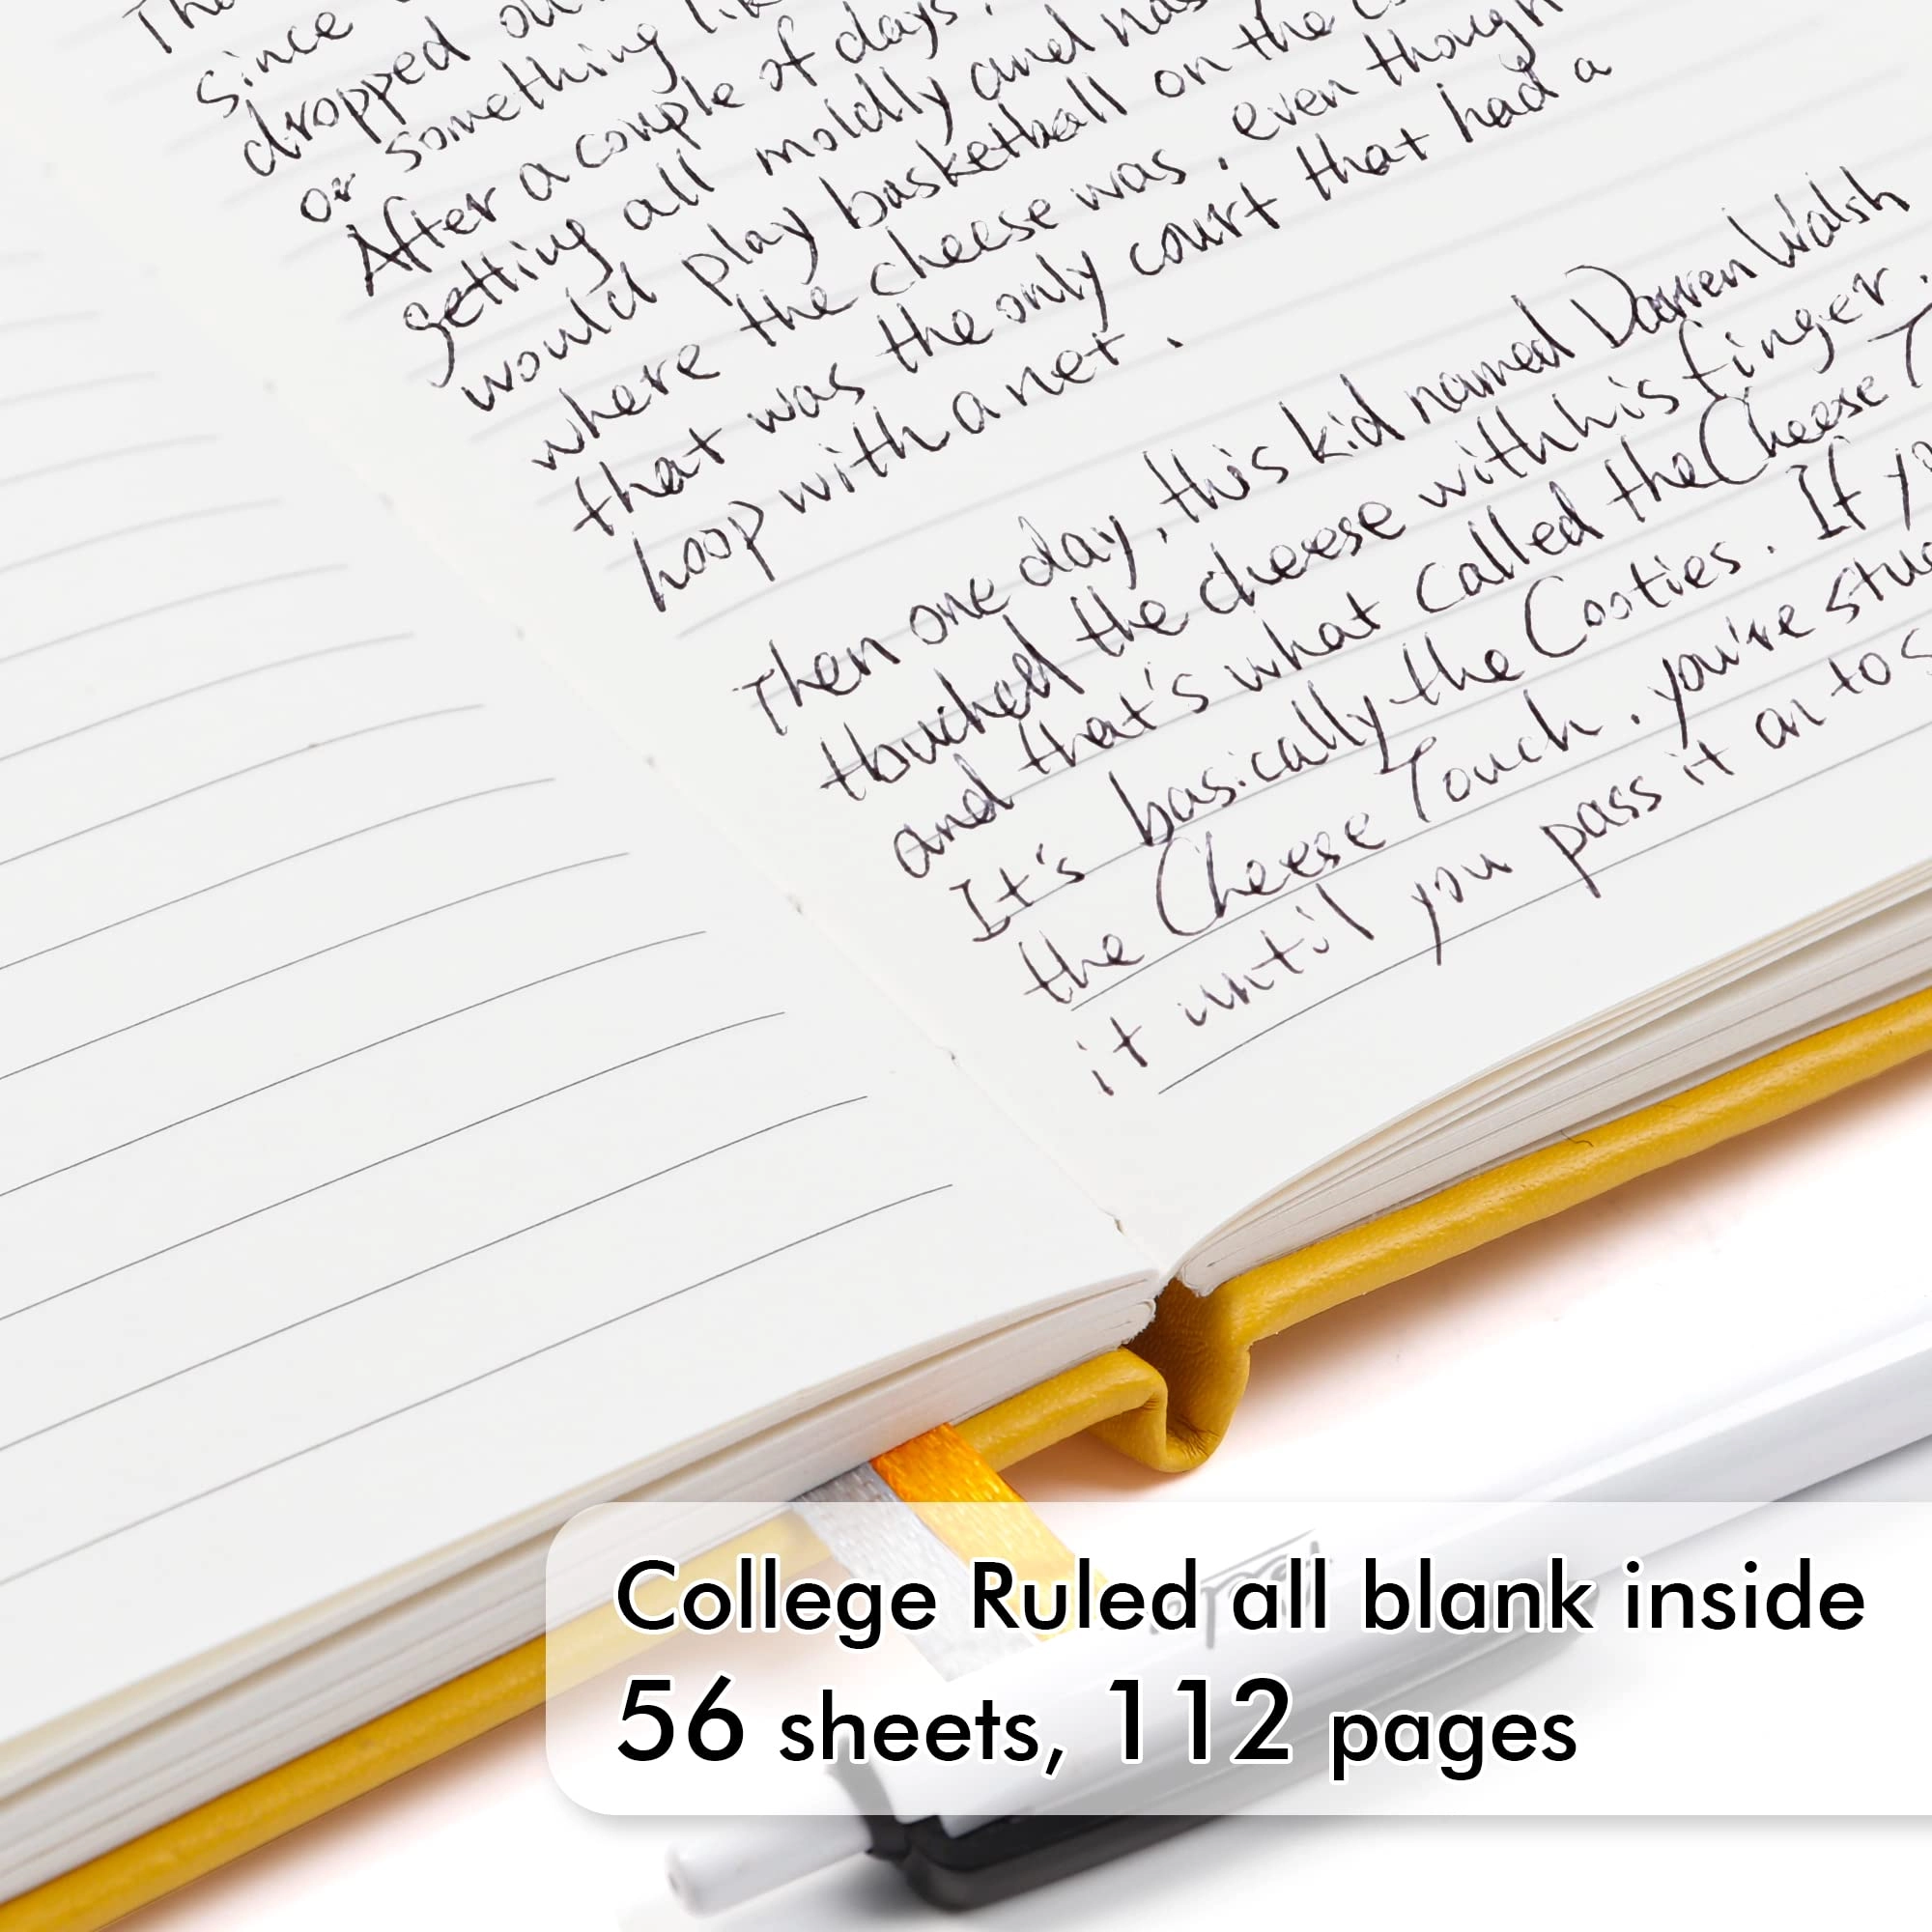 since
dropped
or something
After a couple of days,
getting all moldly and
would play basketball on the
where the cheese was, even though
that was the only court that had a
hoop with a net.
Then one day, this kid named Darren Walsh
thouched the cheese with his finger.
and that's what called the Cheese
It's basically the Cooties. If
the Cheese Touch, you're
it until you pass it on to
College Ruled all blank inside
56 sheets, 112 pages